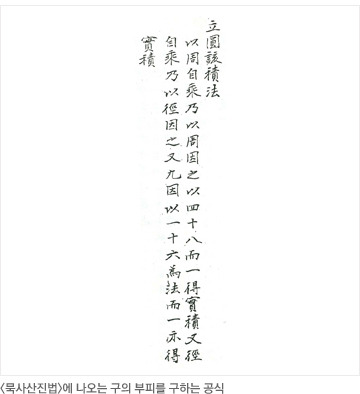 立圓該積法
以周自乘乃以周因之以四十八而一得實積又徑
自乘乃以徑因之又九因以一十六為法而一亦得
實積
〈묵사산진법〉에 나오는 구의 부피를 구하는 공식